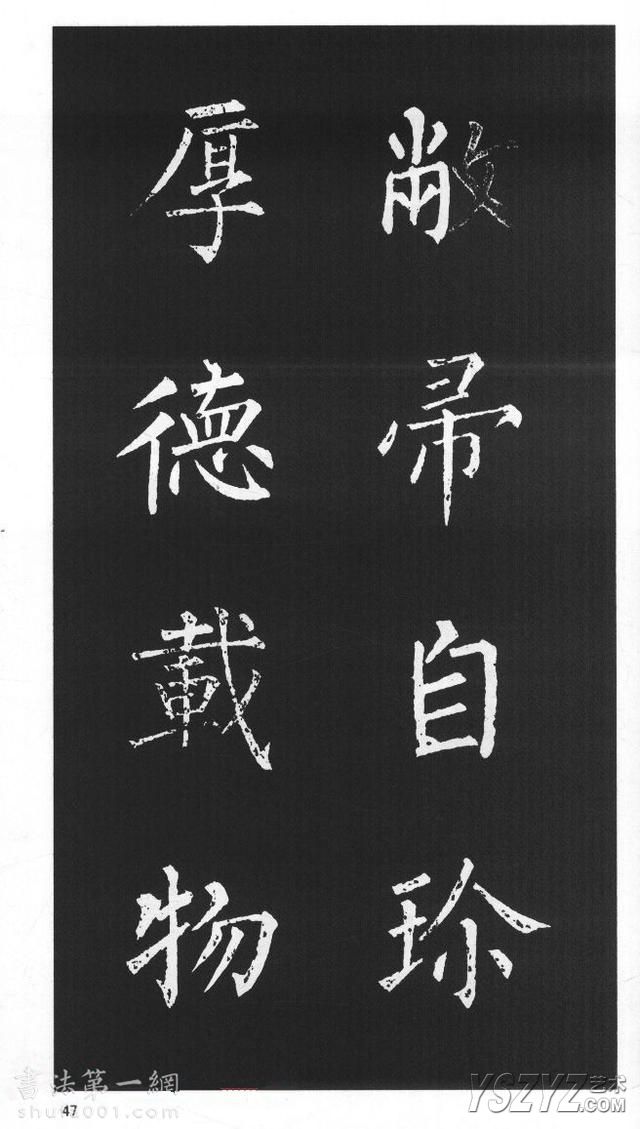 敝帚自珍
厚德載物
書法第一網
shufa001.com
47
YSZYZ艺术
.COM